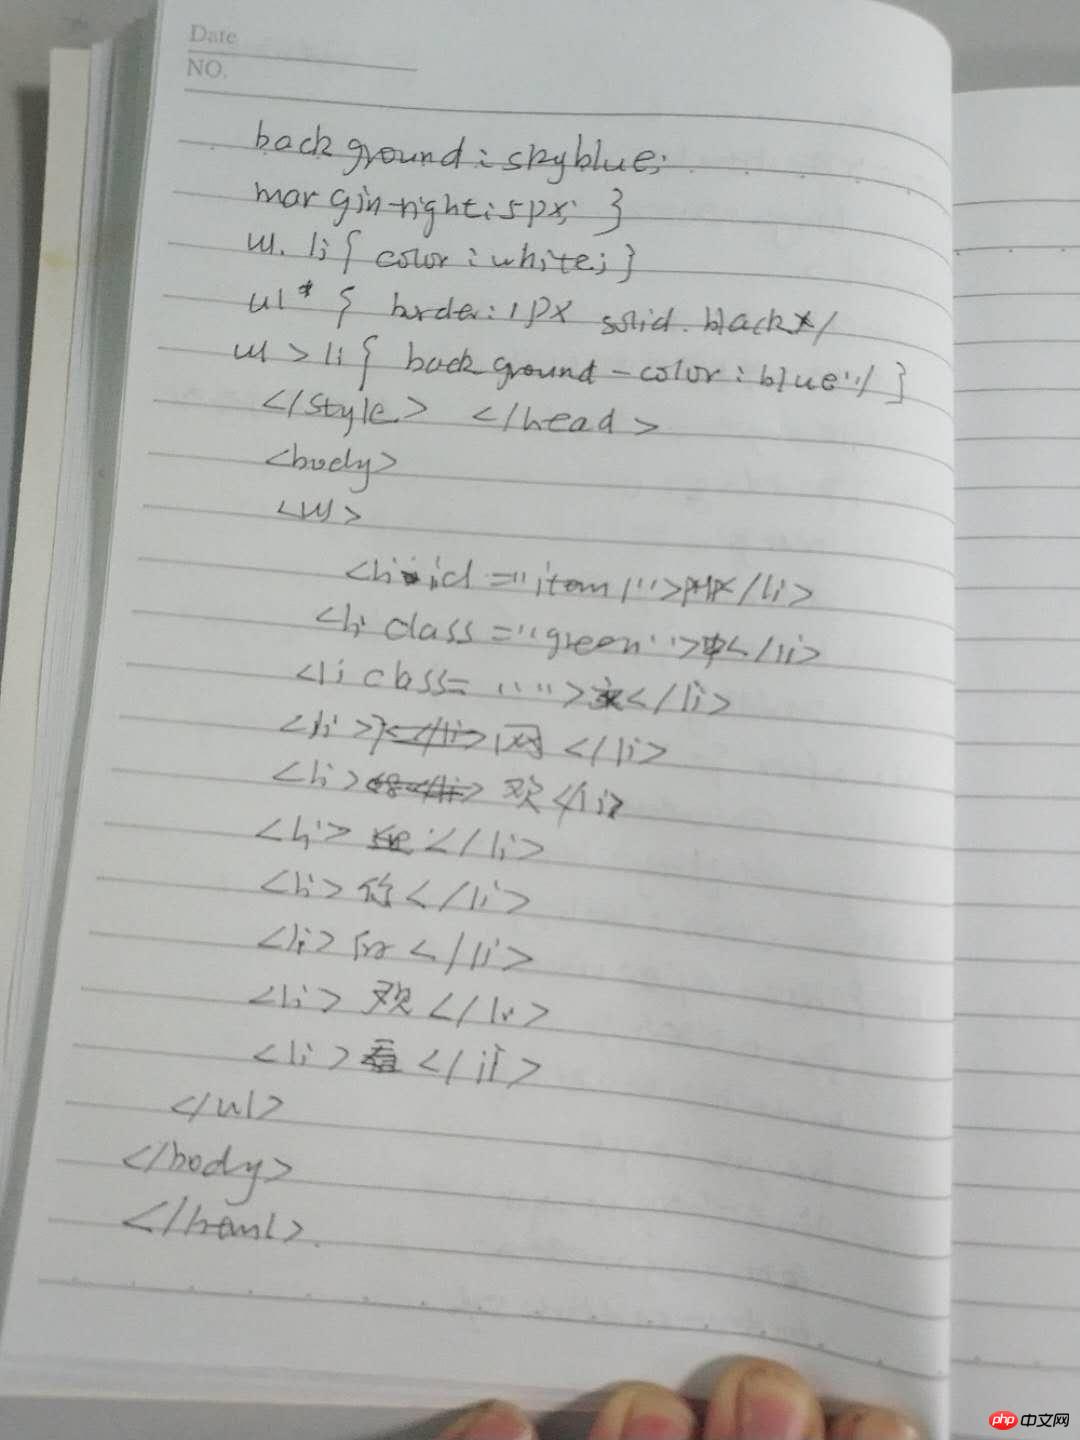 Date
NO.
background : skyblue;
margin-right:5px; }
ul li { color : white; }
ul * { border: 1px solid black*/
ul > li { background-color : blue*/ }
</style> </head>
<body>
<ul>
<li id ="item1">php</li>
<li class ="green">中</li>
<li class= "">文</li>
<li>网</li>
<li>欢</li>
<li></li>
<li>你</li>
<li></li>
<li>观</li>
<li>看</li>
</ul>
</body>
</html>
php 中文网